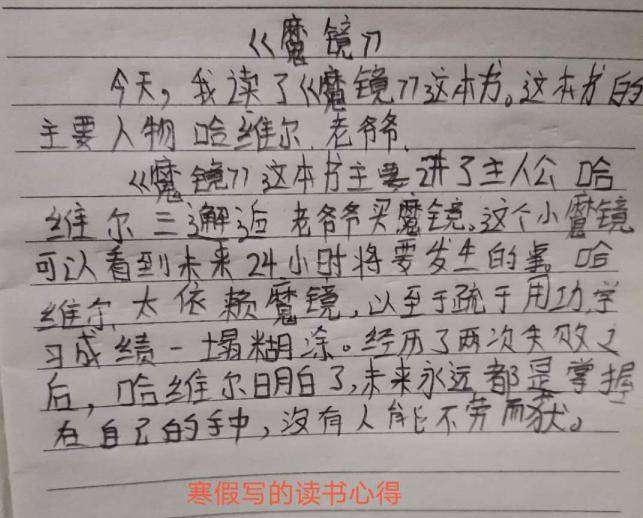 《魔镜》
今天，我读了《魔镜》这本书。这本书的
主要人物哈维尔、老爷爷、
《魔镜》这本书主要讲了主人公哈
维尔三邂逅老爷爷买魔镜。这个小魔镜
可以看到未来24小时将要发生的事。哈
维尔太依赖魔镜，以至于疏于用功，学
习成绩一塌糊涂。经历了两次失败之
后，哈维尔明白了，未来永远都是掌握
在自己的手中，没有人能不劳而获。
寒假写的读书心得